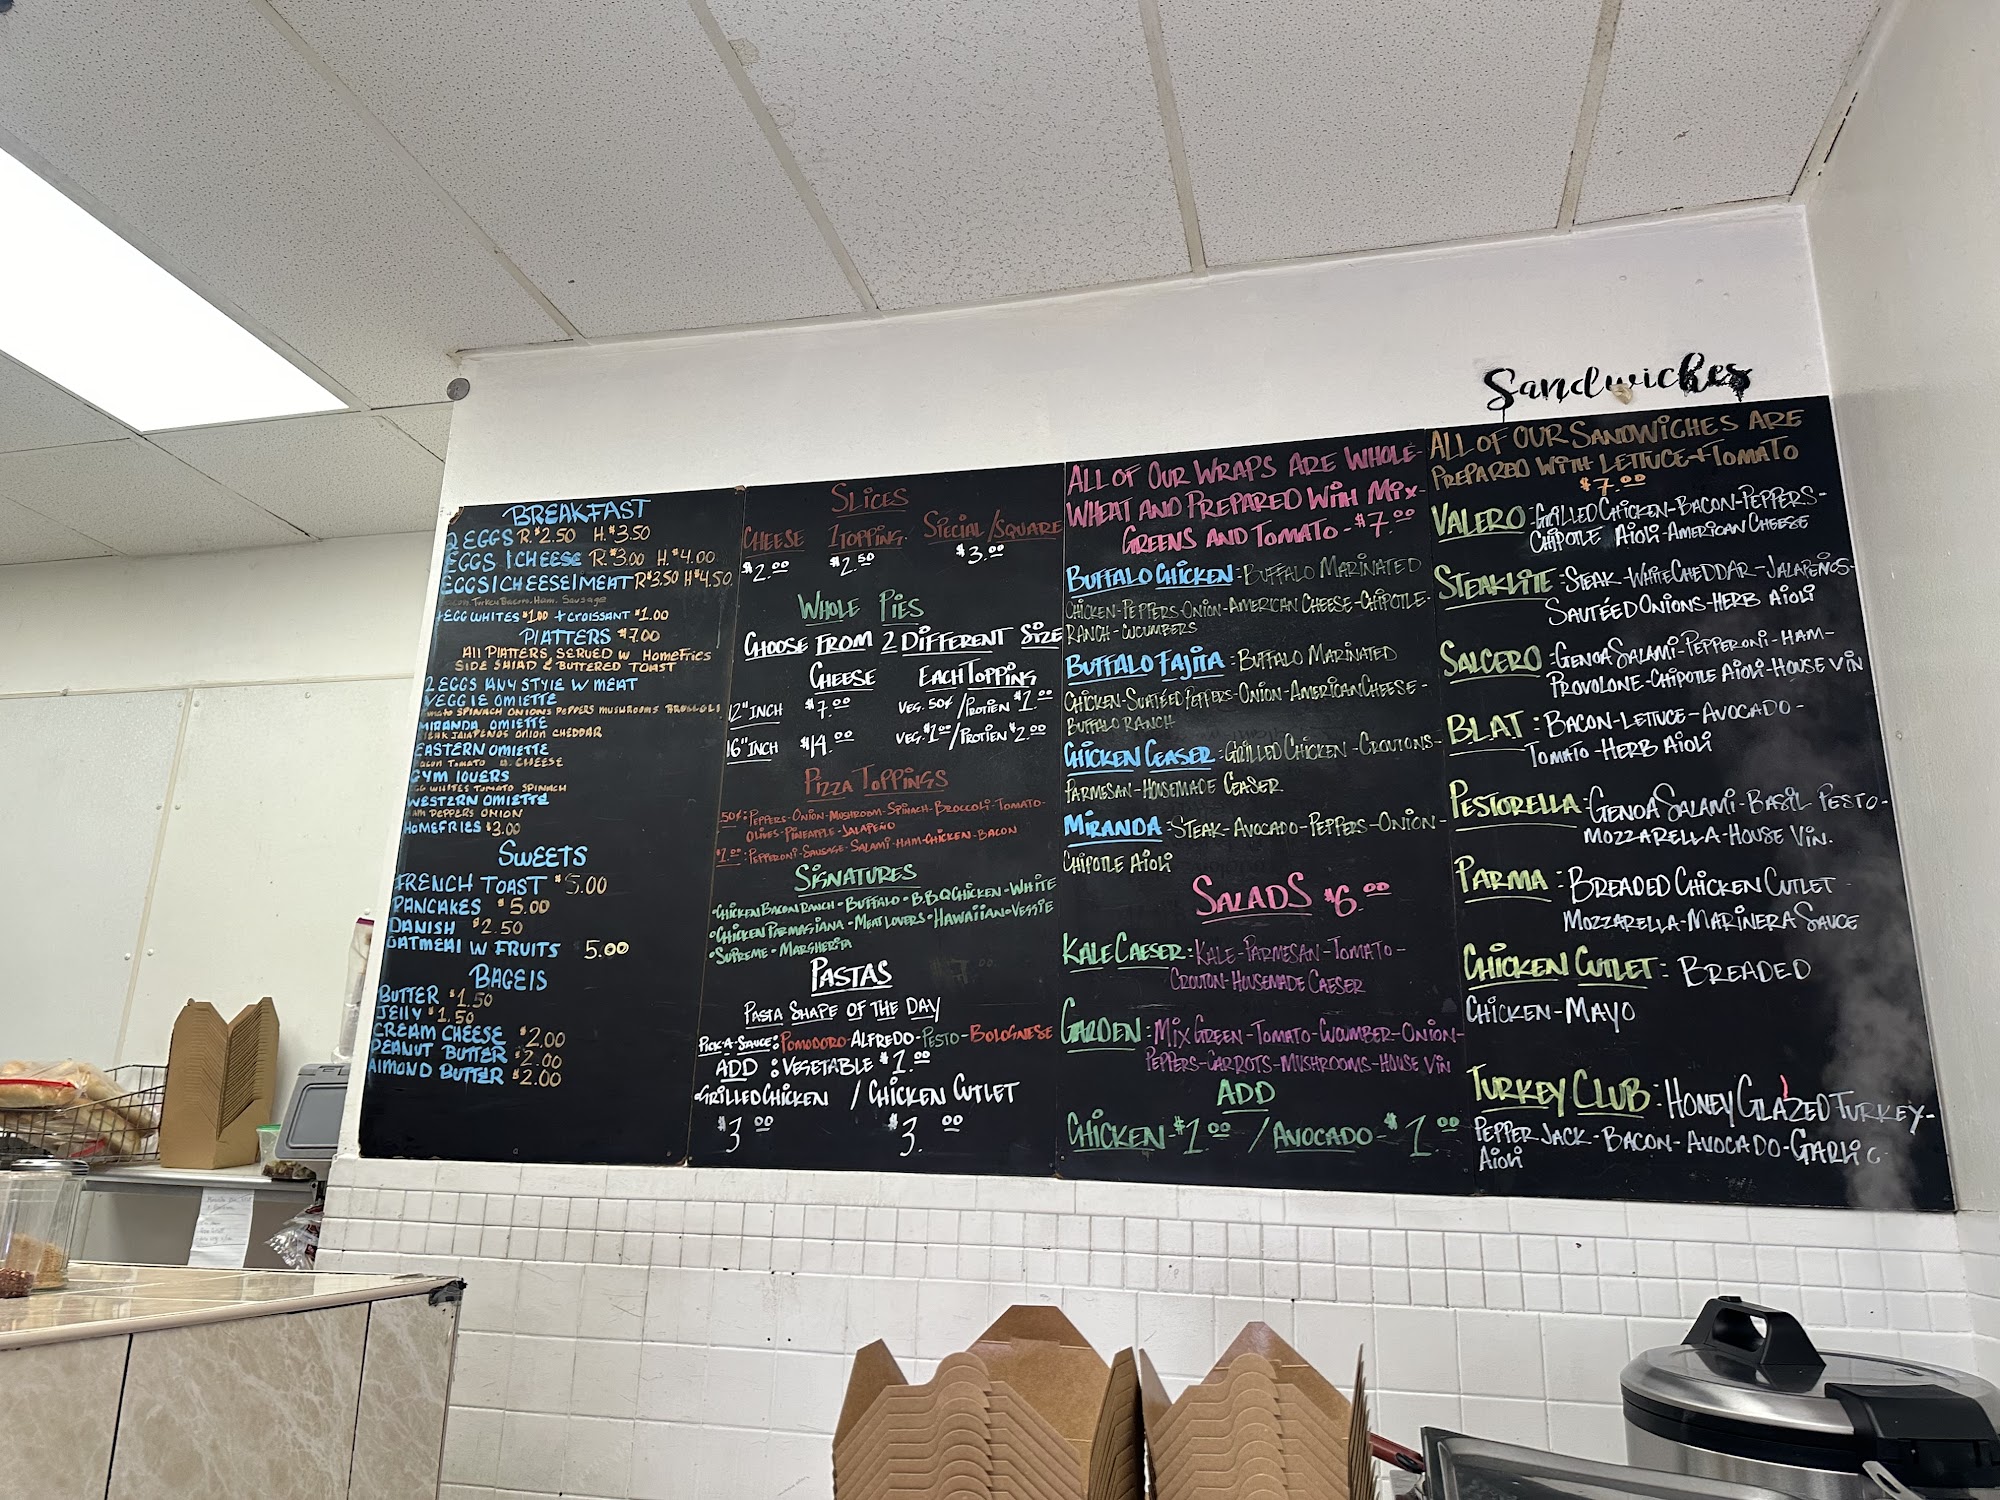 Sandwiches
BREAKFAST
2 EGGS R.$2.50 H.$3.50
EGGS 1 CHEESE R.$3.00 H.$4.00
EGGS 1 CHEESE 1 MEAT R$3.50 H$4.50
Turkey Bacon, Ham, Sausage
+EGG WHITES $1.00 + CROISSANT $1.00
PLATTERS $7.00
All PLATTERS SERVED W HomeFries
SIDE SALAD & BUTTERED TOAST
2 EGGS ANY STYLE W MEAT
VEGGIE OMLETTE
TOMATO SPINACH ONIONS PEPPERS MUSHROOMS BROCCOLI
MIRANDA OMLETTE
STEAK JALAPENOS ONION CHEDDAR
EASTERN OMLETTE
BACON TOMATO CHEESE
GYM LOVERS
EGG WHITES TOMATO SPINACH
WESTERN OMLETTE
HAM PEPPERS ONION
HOMEFRIES $3.00
SWEETS
FRENCH TOAST $5.00
PANCAKES $5.00
DANISH $2.50
OATMEAL W FRUITS 5.00
BAGELS
BUTTER $1.50
JELLY $1.50
CREAM CHEESE $2.00
PEANUT BUTTER $2.00
ALMOND BUTTER $2.00
SLICES
CHEESE 1TOPPING SPECIAL/SQUARE
$2.00 $2.50 $3.00
WHOLE PIES
CHOOSE FROM 2 DIFFERENT SIZE
CHEESE EACH TOPPING
12" INCH $7.00 VEG. 50¢/PROTIEN $1.00
16" INCH $14.00 VEG. $1.00/PROTIEN $2.00
PIZZA TOPPINGS
.50¢: PEPPERS-ONION-MUSHROOM-SPINACH-BROCCOLI-TOMATO-
OLIVES-PINEAPPLE-JALAPEÑO
$1.00: PEPPERONI-SAUSAGE-SALAMI-HAM-CHICKEN-BACON
SIGNATURES
•CHICKEN BACON RANCH•BUFFALO•B.B.Q CHICKEN•WHITE
•CHICKEN PARMASIANA•MEAT LOVERS•HAWAIIAN•VEGGIE
•SUPREME•MARGHERITA
PASTAS
PASTA SHAPE OF THE DAY
PICK-A-SAUCE: POMODORO-ALFREDO-PESTO-BOLOGNESE
ADD: VEGETABLE $1.00
GRILLED CHICKEN / CHICKEN CUTLET
$3.00 $3.00
ALL OF OUR WRAPS ARE WHOLE-
WHEAT AND PREPARED WITH MIX-
GREENS AND TOMATO-$7.00
BUFFALO CHICKEN: BUFFALO MARINATED
CHICKEN-PEPPERS-ONION-AMERICAN CHEESE-CHIPOTLE-
RANCH-CUCUMBERS
BUFFALO FAJITA: BUFFALO MARINATED
CHICKEN-SUATÉED PEPPERS-ONION-AMERICAN CHEESE-
BUFFALO RANCH
CHICKEN CEASER: GRILLED CHICKEN-CROUTONS-
PARMESAN-HOUSEMADE CEASER
MIRANDA: STEAK-AVOCADO-PEPPERS-ONION-
CHIPOTLE AIOLI
SALADS $6.00
KALE CAESER: KALE-PARMESAN-TOMATO-
CROUTON-HOUSEMADE CAESER
GARDEN: MIX GREEN-TOMATO-CUCUMBER-ONION-
PEPPERS-CARROTS-MUSHROOMS-HOUSE VIN
ADD
CHICKEN-$1.00 / AVOCADO-$1.00
ALL OF OUR SANDWICHES ARE
PREPARED WITH LETTUCE+TOMATO
$7.00
VALERO: GRILLED CHICKEN-BACON-PEPPERS-
CHIPOTLE AIOLI-AMERICAN CHEESE
STEAKLITE: STEAK-WHITE CHEDDAR-JALAPEÑOS-
SAUTÉED ONIONS-HERB AIOLI
SALCERO: GENOA SALAMI-PEPPERONI-HAM-
PROVOLONE-CHIPOTLE AIOLI-HOUSE VIN
BLAT: BACON-LETTUCE-AVOCADO-
TOMATO-HERB AIOLI
PESTORELLA: GENOA SALAMI-BASIL PESTO-
MOZZARELLA-HOUSE VIN.
PARMA: BREADED CHICKEN CUTLET-
MOZZARELLA-MARINERA SAUCE
CHICKEN CUTLET: BREADED
CHICKEN-MAYO
TURKEY CLUB: HONEY GLAZED TURKEY-
PEPPER JACK-BACON-AVOCADO-GARLIC
AIOLI